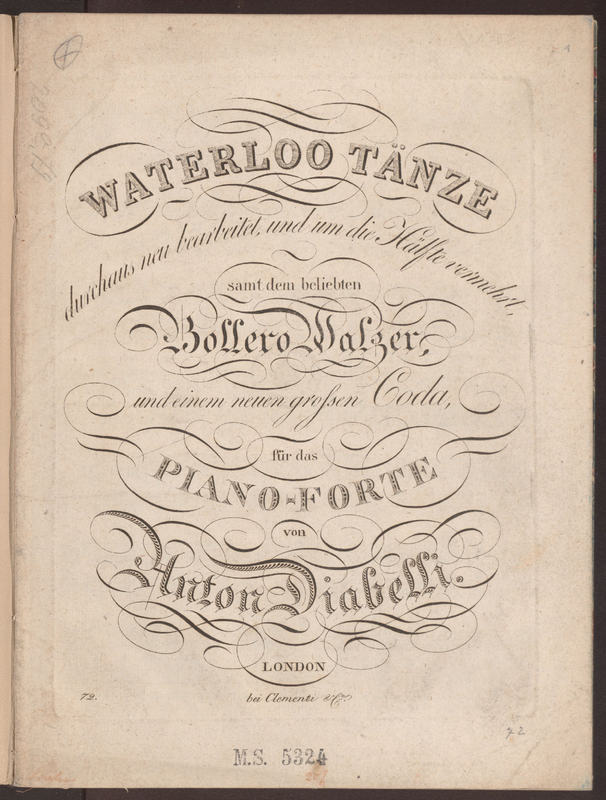 WATERLOO TÄNZE
durchaus neu bearbeitet, und um die Hälfte vermehrt,
samt dem beliebten
Bollero Walzer,
und einem neuen großen Coda,
für das
PIANO-FORTE
von
Anton Diabelli.
LONDON
72. bei Clementi & Co.
72
M.S. 5324